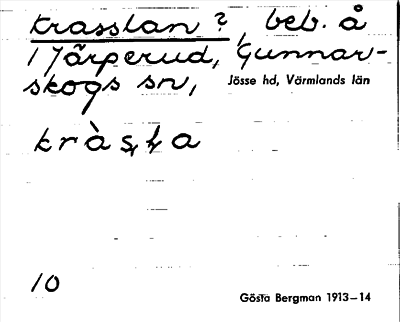 Krasslan ?, beb. å
1 Järperud, Gunnar-
skogs sn, Jösse hd, Värmlands län
10
Gösta Bergman 1913–14